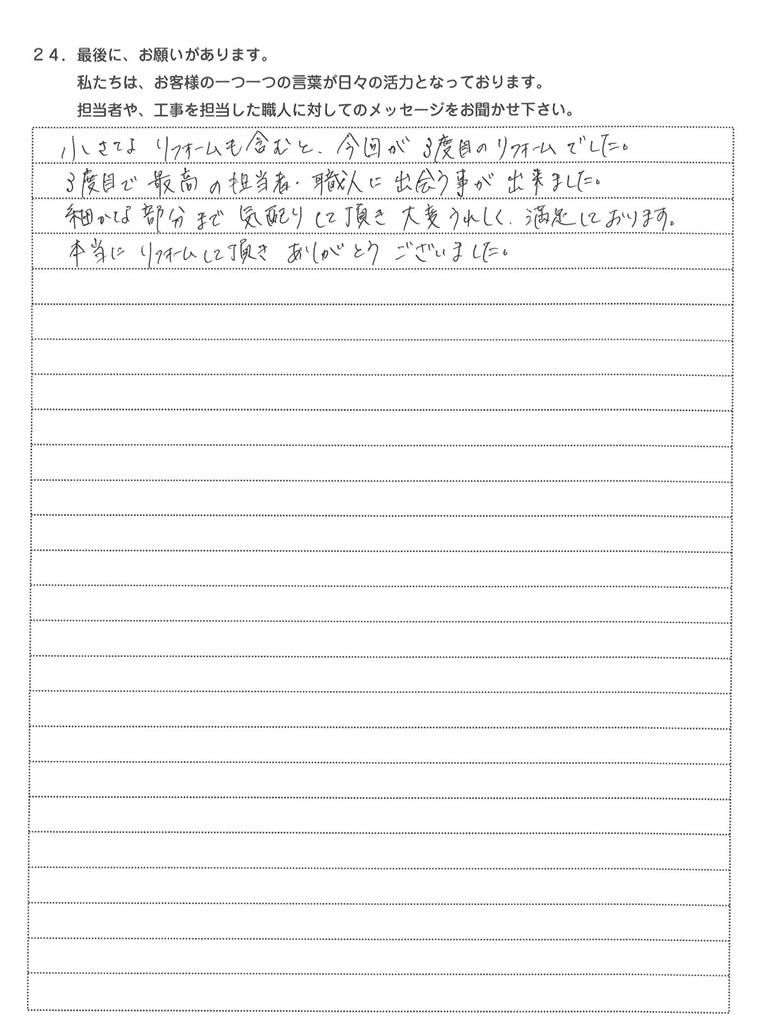 24. 最後に、お願いがあります。
私たちは、お客様の一つ一つの言葉が日々の活力となっております。
担当者や、工事を担当した職人に対してのメッセージをお聞かせ下さい。
小さなリフォームも含むと、今回が3度目のリフォームでした。
3度目で最高の担当者・職人に出会う事が出来ました。
細かな部分まで気配りして頂き大変うれしく、満足しております。
本当にリフォームして頂きありがとうございました。